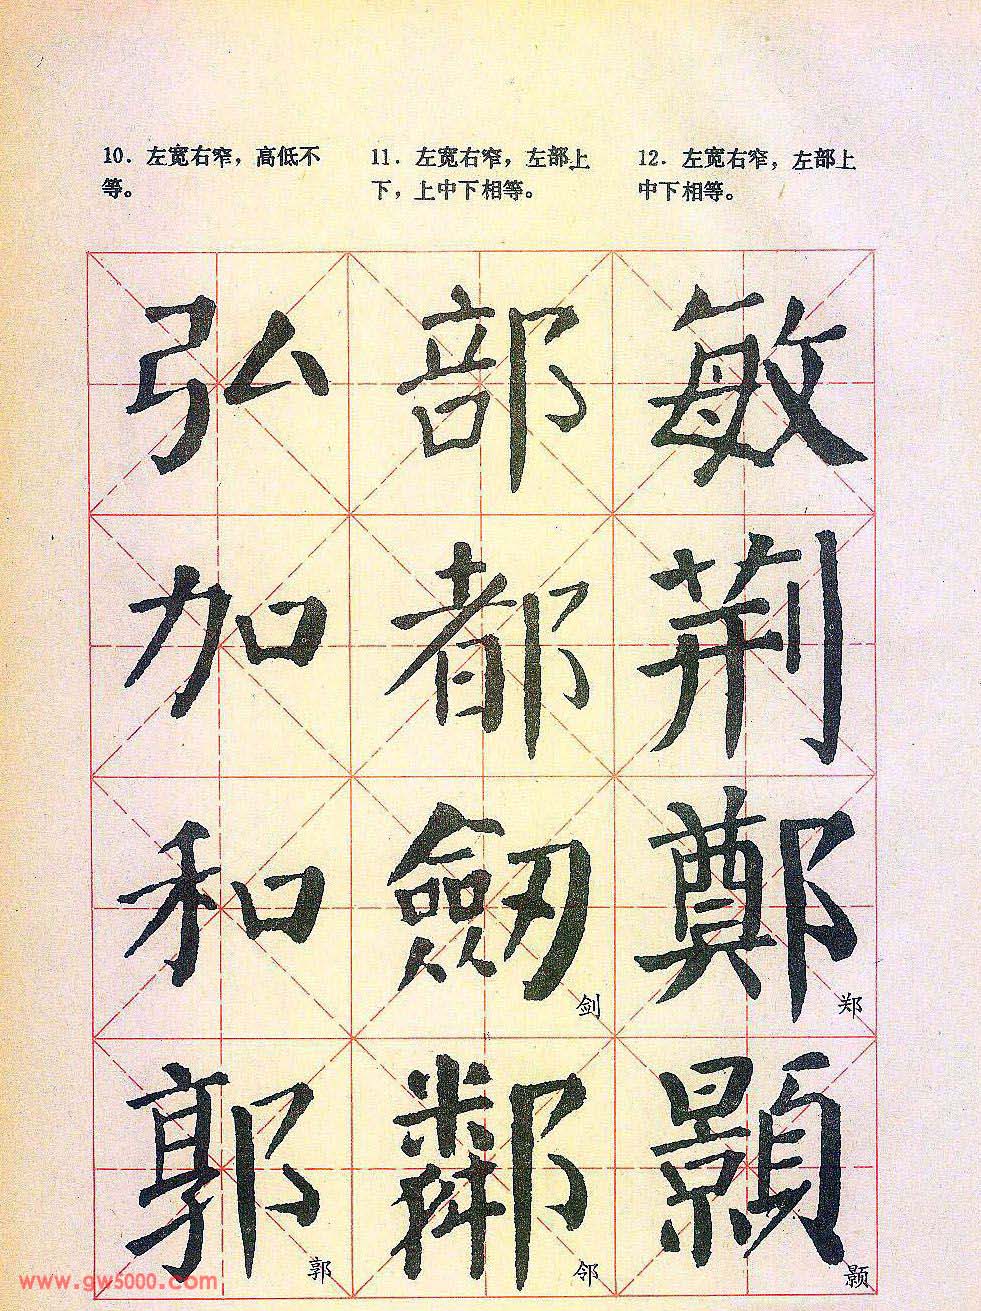 10. 左宽右窄，高低不
等。
11. 左宽右窄，左部上
下，上中下相等。
12. 左宽右窄，左部上
中下相等。
弘 部 敏
加 都 荆
和 劒 鄭
剑 郑
郭 鄰 顥
郭 邻 颢
www.gw5000.com